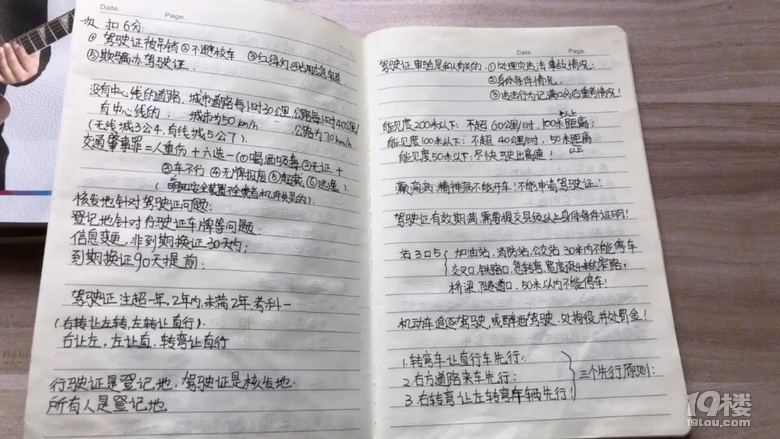 Date. Page.
一次扣6分:
① 驾驶证被吊销 ②不避校车 ③红绿灯 ④占用应急车道
⑤欺骗办驾驶证
没有中心线的道路,城市道路每小时30公里,公路每小时40公里!
有中心线的: 城市为50km/h 公路为70km/h
(无线城3公4,有线城5公7).
交通肇事罪=人重伤+六选一(①喝酒吸毒 ②无证+
③车不行 ④无牌报废 ⑤超载 ⑥逃逸)
核发地针对驾驶证问题:
登记地针对行驶证车牌等问题:
信息变更,非到期换证30天内:
到期换证90天提前:
驾驶证注超一年,2年内,未满2年,考科一
(右转让左转,左转让直行).
右让左,左让直,转弯让直行
行驶证是登记地,驾驶证是核发地.
所有人是登记地.
Date. Page.
驾驶证审验是和人有关的. ①处理交违法事故情况;
②身体条件情况.
③违法行为记满12分后重考情况!
能见度200米以下: 不超60公里/时, 100米以上距离;
能见度100米以下: 不超40公里/时, 50米以上距离
能见度50米以下: 尽快驶出高速!
癫痫病,精神病不能开车!不能申请驾驶证!
驾驶证有效期满,需要提交县级以上身体条件证明!
站3口5 加油站,消防站,公交站30米内不能停车
交叉口,铁路口,急转弯,宽度不足4米的窄路,
桥梁,隧道口,50米以内不能停车!
机动车追逐驾驶,或醉酒驾驶.处拘役,并处罚金!
1.转弯车让直行车先行;
2.右方道路来车先行;
3.右转弯让左转弯车辆先行!
三个先行原则:
19楼
19lou.com